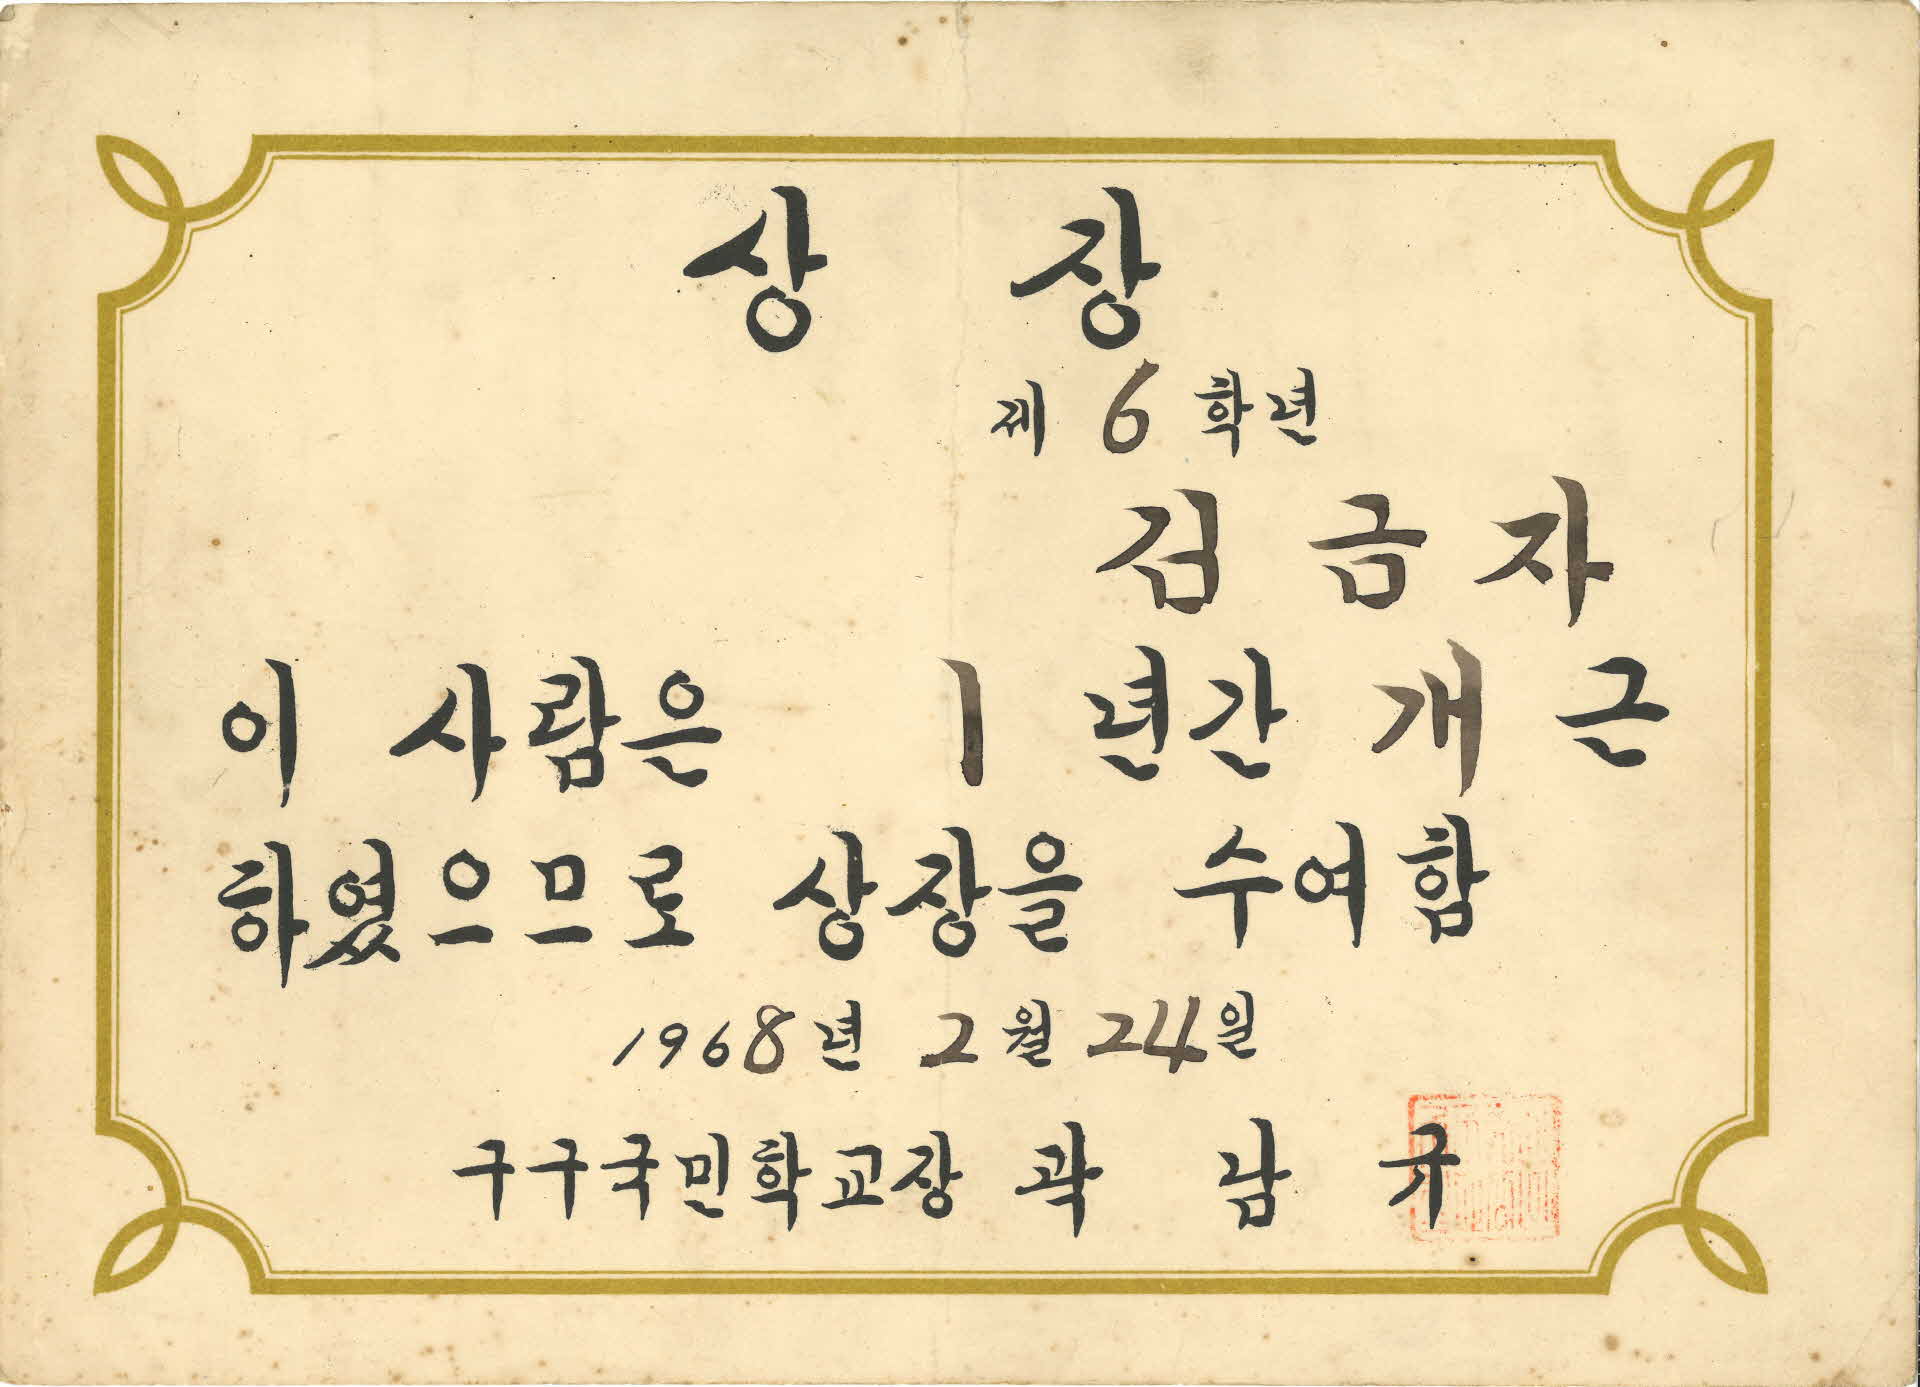 상 장
제 6 학년
김 금 자
이 사람은 1 년간 개 근
하였으므로 상장을 수여함
1968년 2월 24일
구구국민학교장 곽 남 규